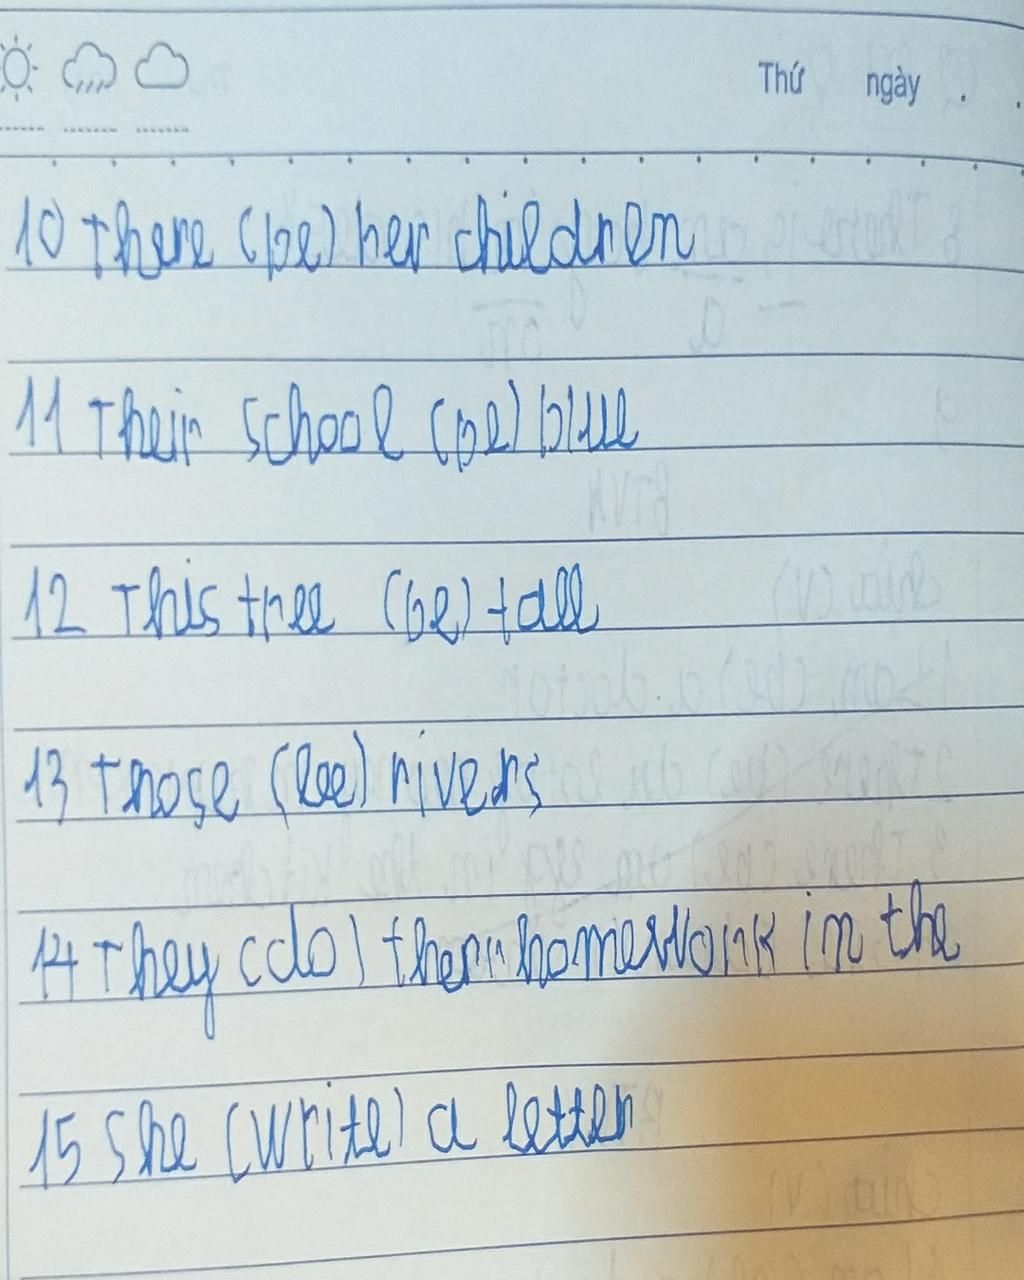 Thứ ngày . .
10 There (be) her children
11 Their school (be) blue
12 This tree (be) tall
13 Those (be) rivers
14 They (do) their homework in the
15 She (write) a letter